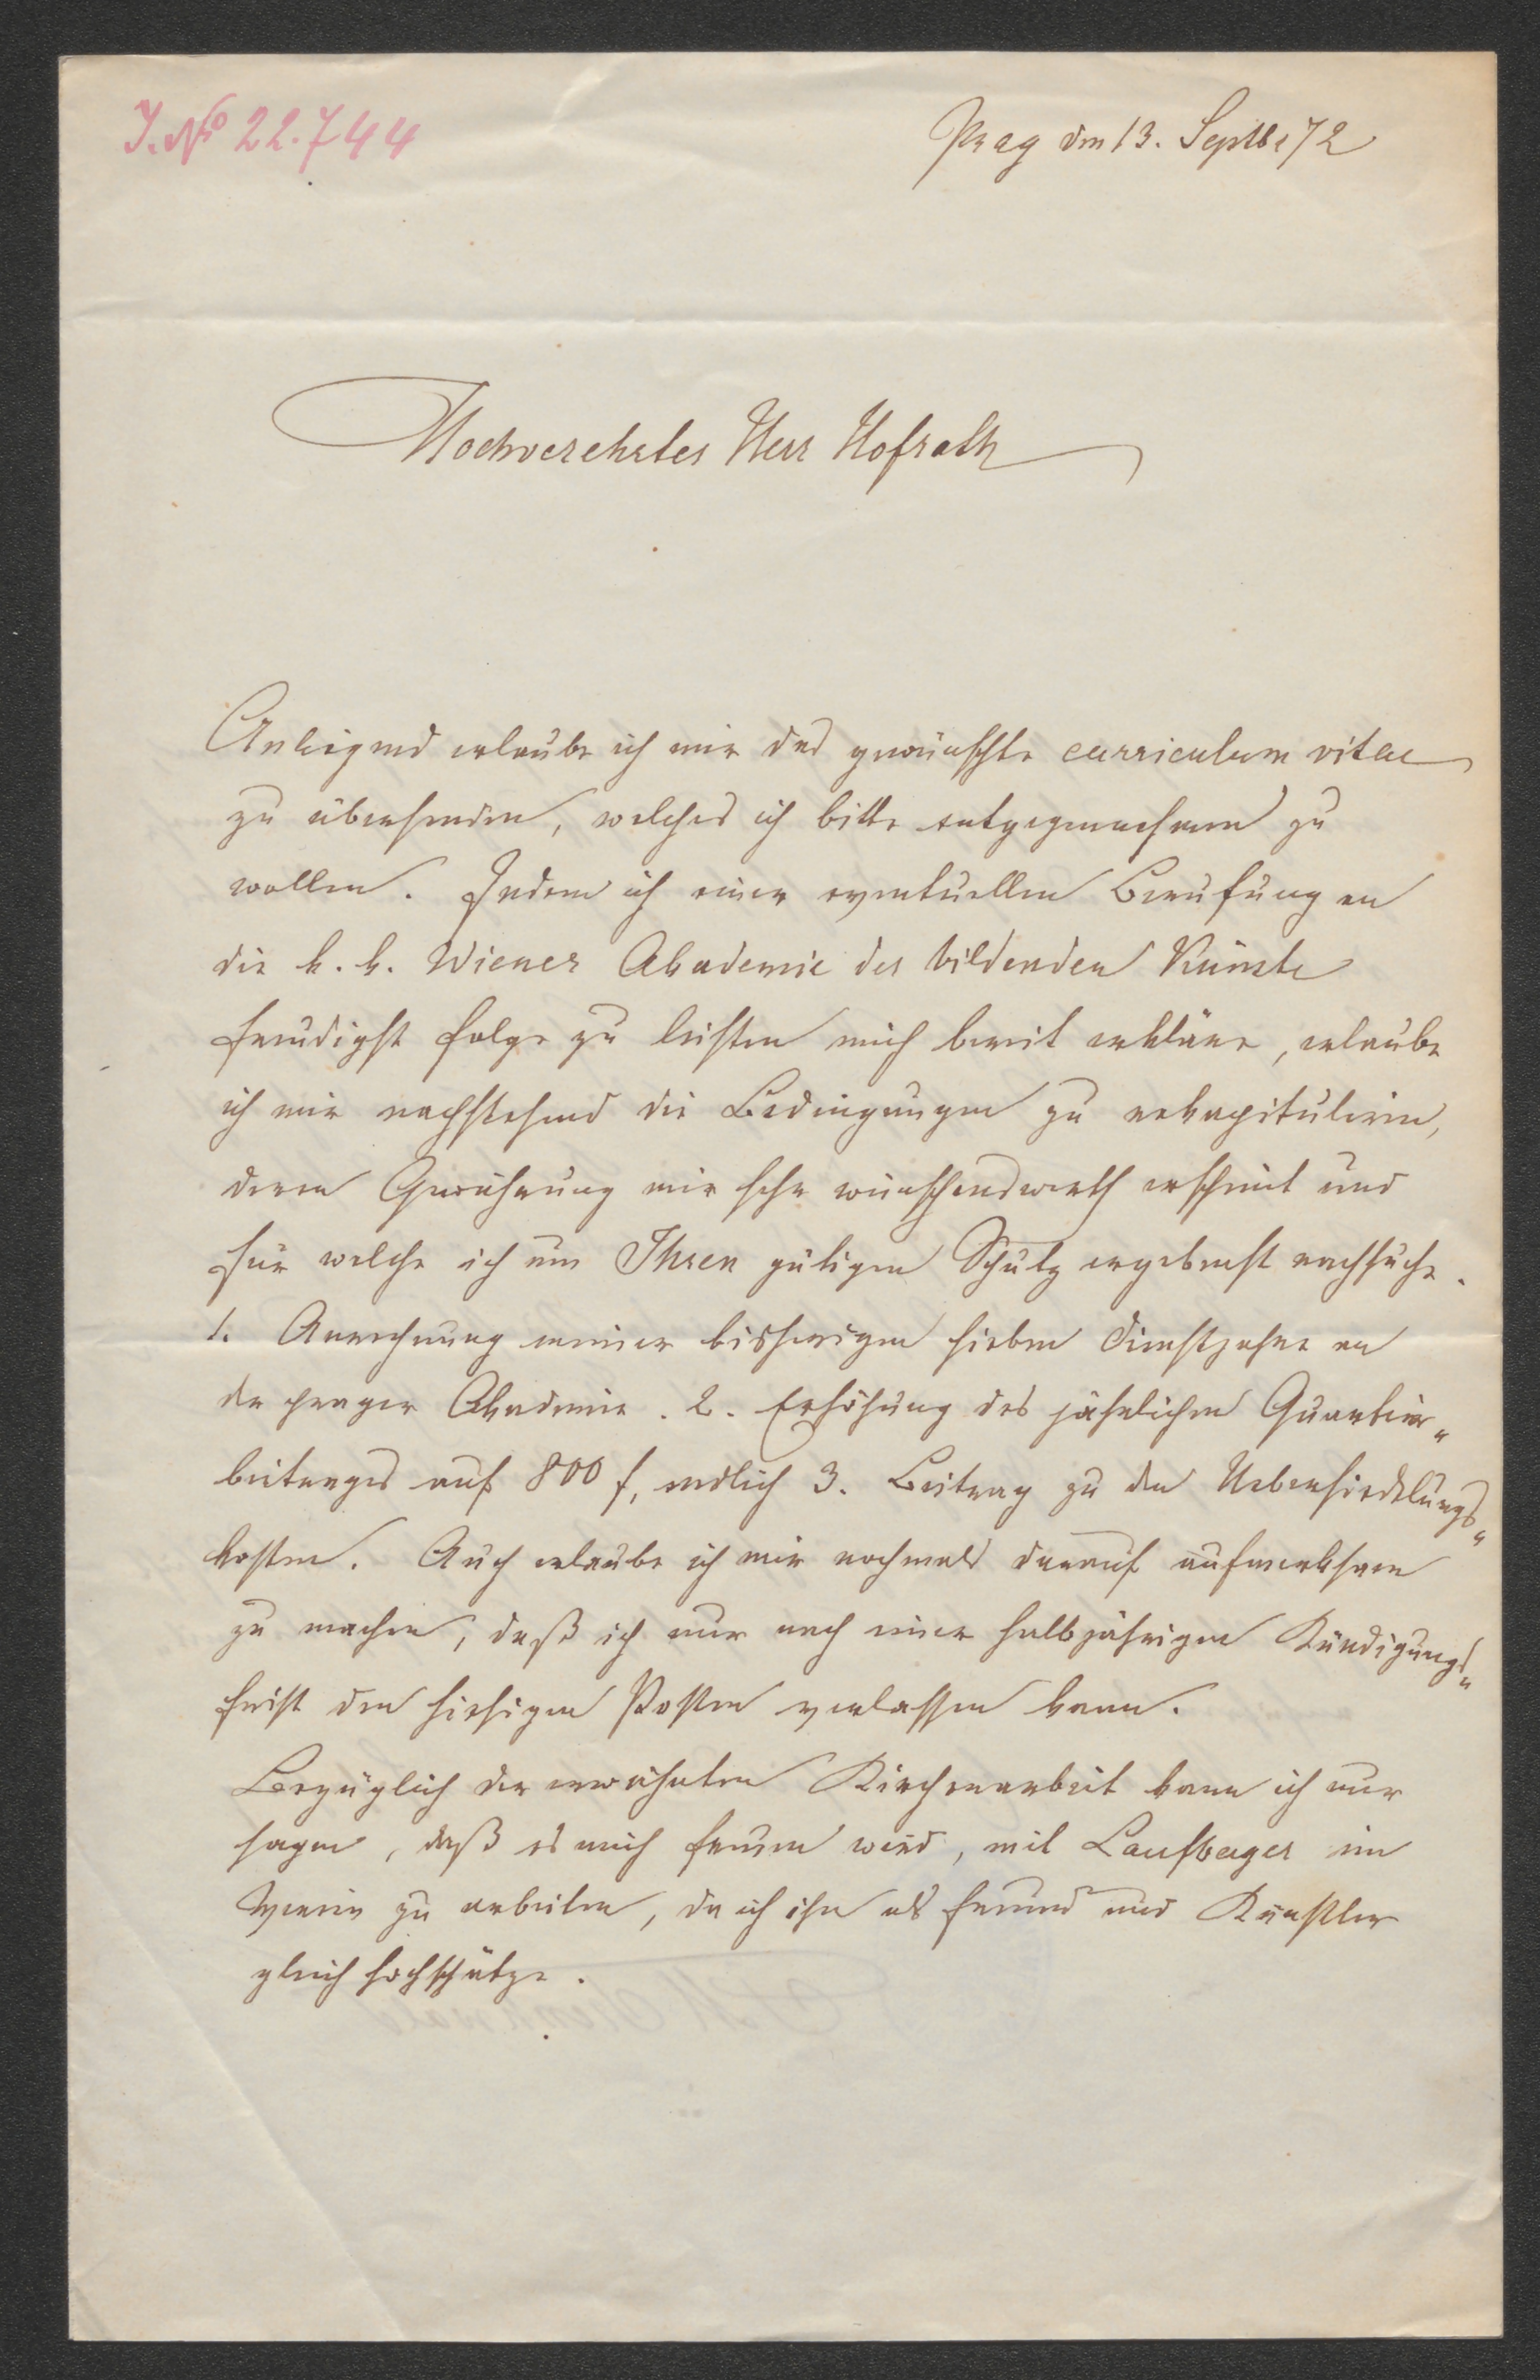 J. No 22.744
Prag den 13. Septbr 72
Hochverehrter Herr Hofrath
Anliegend erlaube ich mir das gewünschte curriculum vitae
zu übersenden, welches ich bitte entgegennehmen zu
wollen. Indem ich einer eventuellen Berufung an
die k. k. Wiener Akademie der bildenden Künste
freudigst folge zu leisten mich bereit erkläre, erlaube
ich mir nachstehend die Bedingungen zu rekapituliren,
deren Gewährung mir sehr wünschenswerth erscheint und
für welche ich um Ihren gütigen Schutz ergebenst nachsuche.
1. Anrechnung meiner bisherigen sieben Dienstjahre an
der prager Akademie. 2. Erhöhung des jährlichen Quartier„
beitrages auf 800 f, endlich 3. Beitrag zu den Uebersiedelungs„
kosten. Auch erlaube ich mir nochmals darauf aufmerksam
zu machen, daß ich nur nach einer halbjährigen Kündigungs„
frist den hiesigen Posten verlassen kann.
Bezüglich der erwähnten Kirchenarbeit kann ich nur
sagen, daß es mich freuen wird, mit Laufberger im
Verein zu arbeiten, da ich ihn als Freund und Künstler
gleich hochschätze.